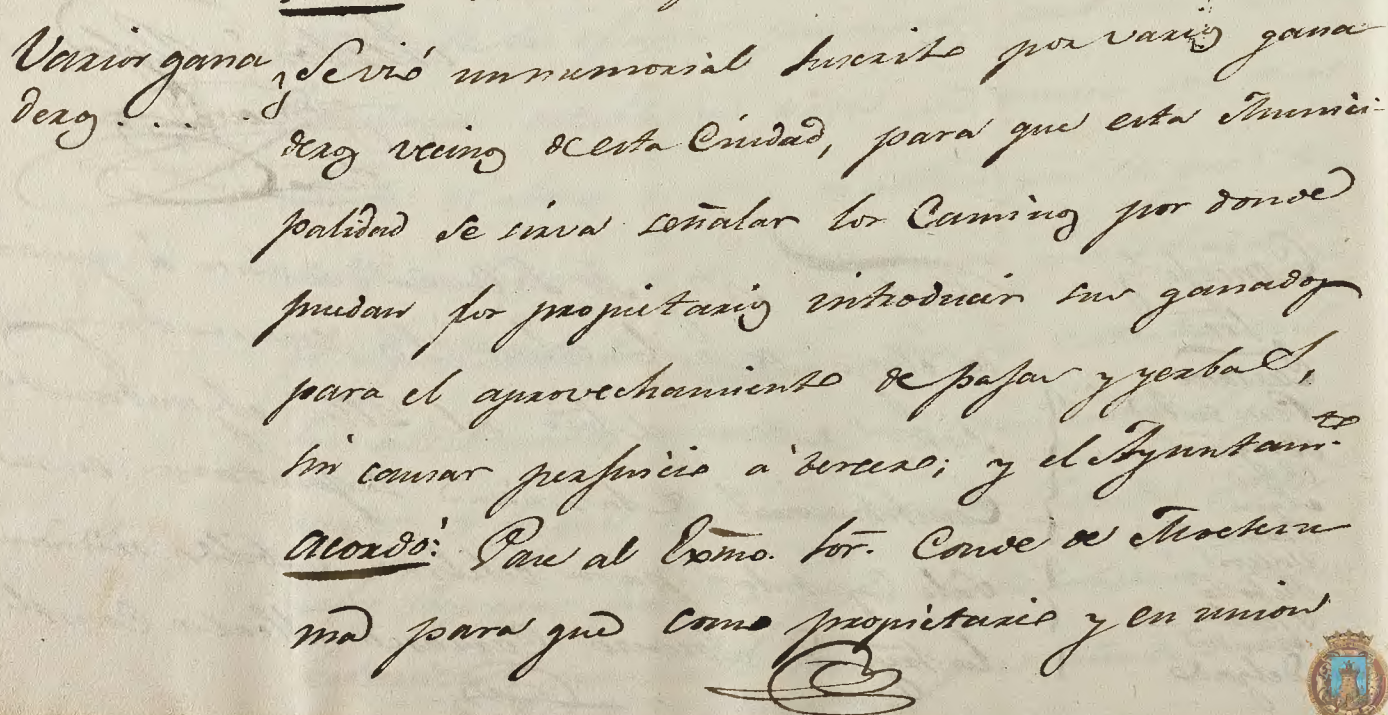 Varios gana
deros . . . .
Se vió un memorial suscrito por varios gana
deros vecinos de esta Ciudad, para que esta Munici-
palidad se sirva señalar los Caminos por donde
puedan los propietarios introducir sus ganados
para el aprovechamiento de pajas y yerbas,
sin causar perjuicio á tercero; y el Ayuntam.to
acordó: Pase al Exmo. Sor. Conde de Moctezu
ma para que como propietario y en union